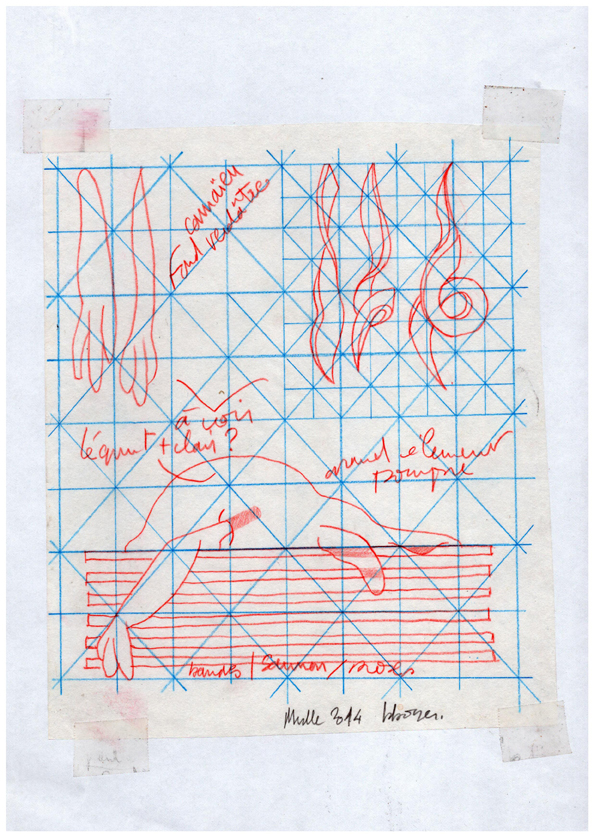 camaïeu
Fond verdâtre
à voir
légmt + clair ?
grand élément
pourpre
bandes / Saumon / roses
Mulle 314